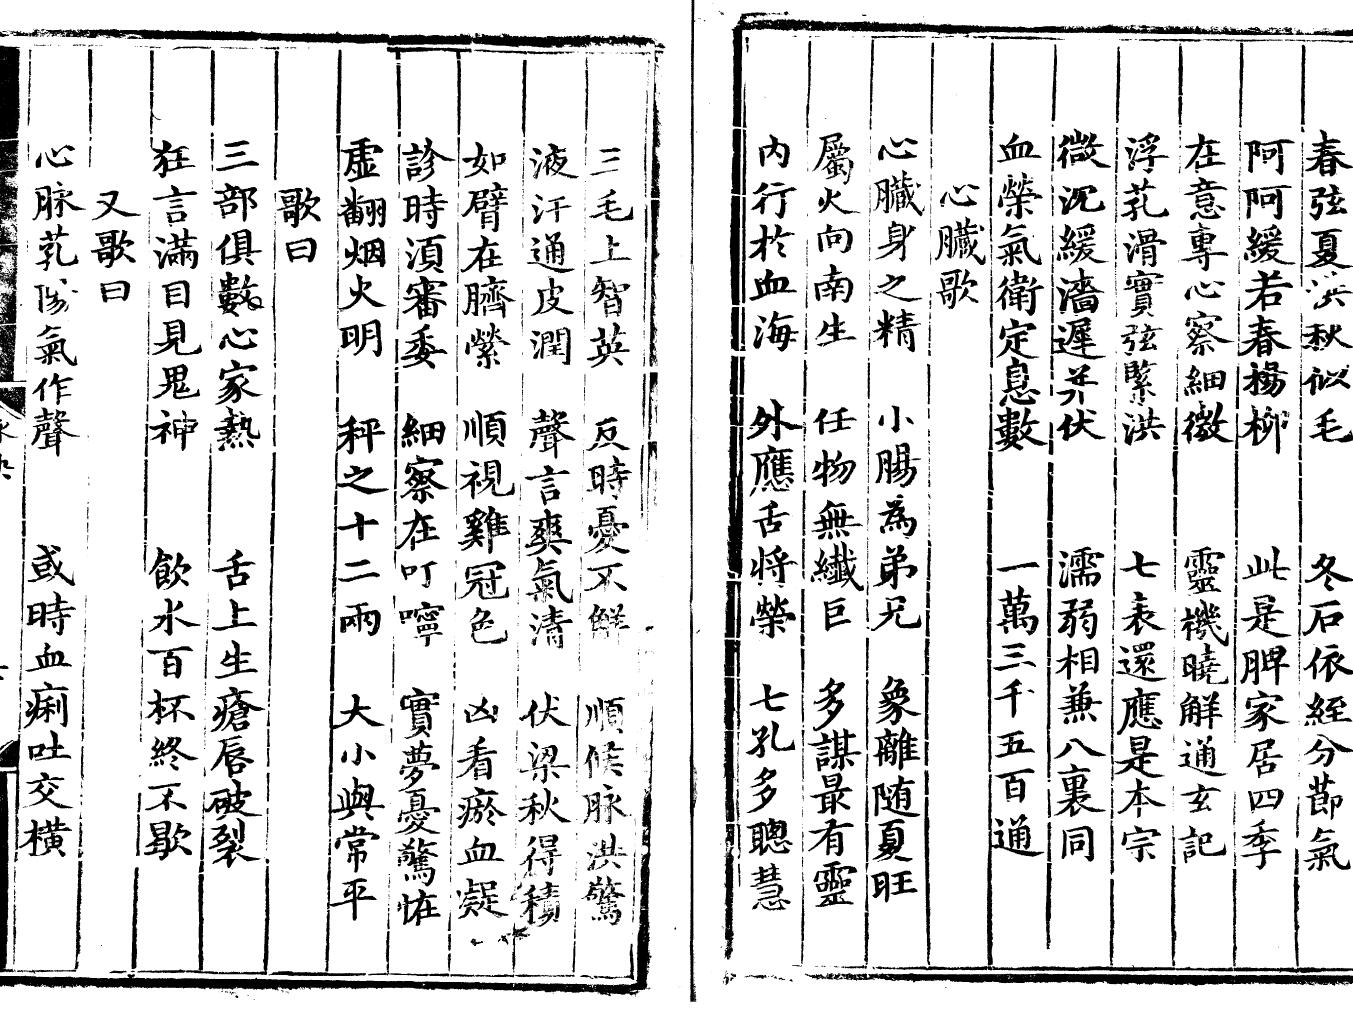 春弦夏洪秋似毛　冬石依經分節氣
阿阿緩若春楊柳　此是脾家居四季
在意專心察細微　靈機曉解通玄記
浮芤滑實弦緊洪　七表還應是本宗
微沉緩濇遲并伏　濡弱相兼八裏同
血榮氣衛定息數　一萬三千五百通
心臟歌
心臟身之精　小腸為弟兄　象離随夏旺
屬火向南生　任物無纖巨　多謀最有靈
內行於血海　外應舌將榮　七孔多聰慧
三毛上智英　反時憂不解　順候脉洪驚
液汗通皮潤　聲言爽氣清　伏梁秋得積
如臂在臍縈　順視雞冠色　凶看瘀血凝
診時須審委　細察在叮嚀　實夢憂驚恠
虚翻烟火明　秤之十二兩　大小與常平
歌曰
三部俱數心家熱　舌上生瘡唇破裂
狂言滿目見鬼神　飲水百杯終不歇
又歌曰
心脉芤陽氣作聲　或時血痢吐交橫